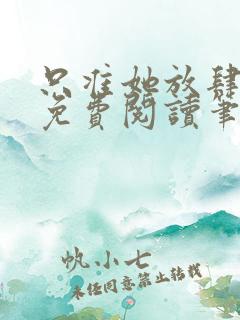 只准她放肆
免費閱讀筆
帆小七
未经同意禁止转载